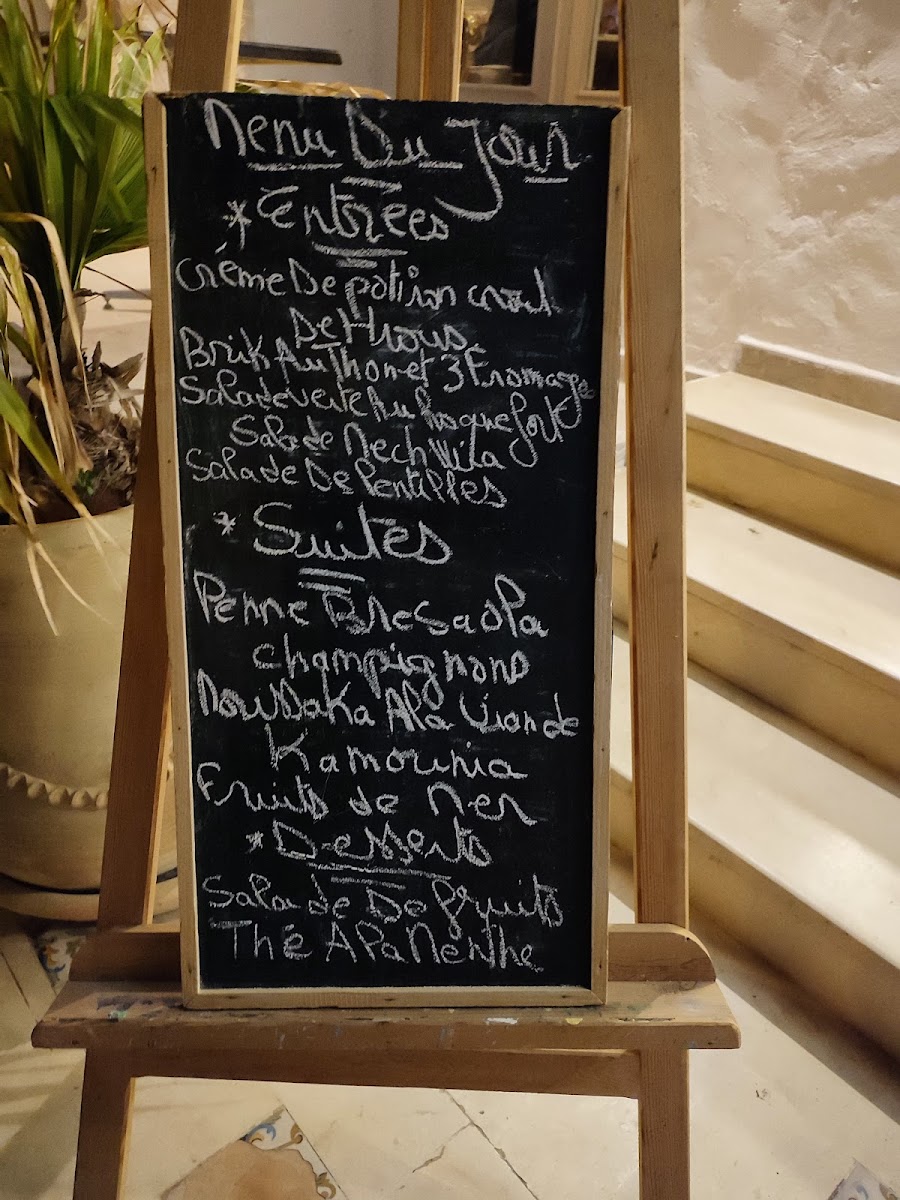 Menu Du Jour
* Entrées
Crème De potiron
De Hrous
Brik Au Thon et 3 Fromage
Salade Verte Au Roquefort
Salade Mechwia
Salade De Lentilles
* Suites
Penne Bresaola
champignons
Moussaka A la Viande
Kamounia
Fruits de Mer
* Desserts
Salade De fruits
Thé A la Menthe